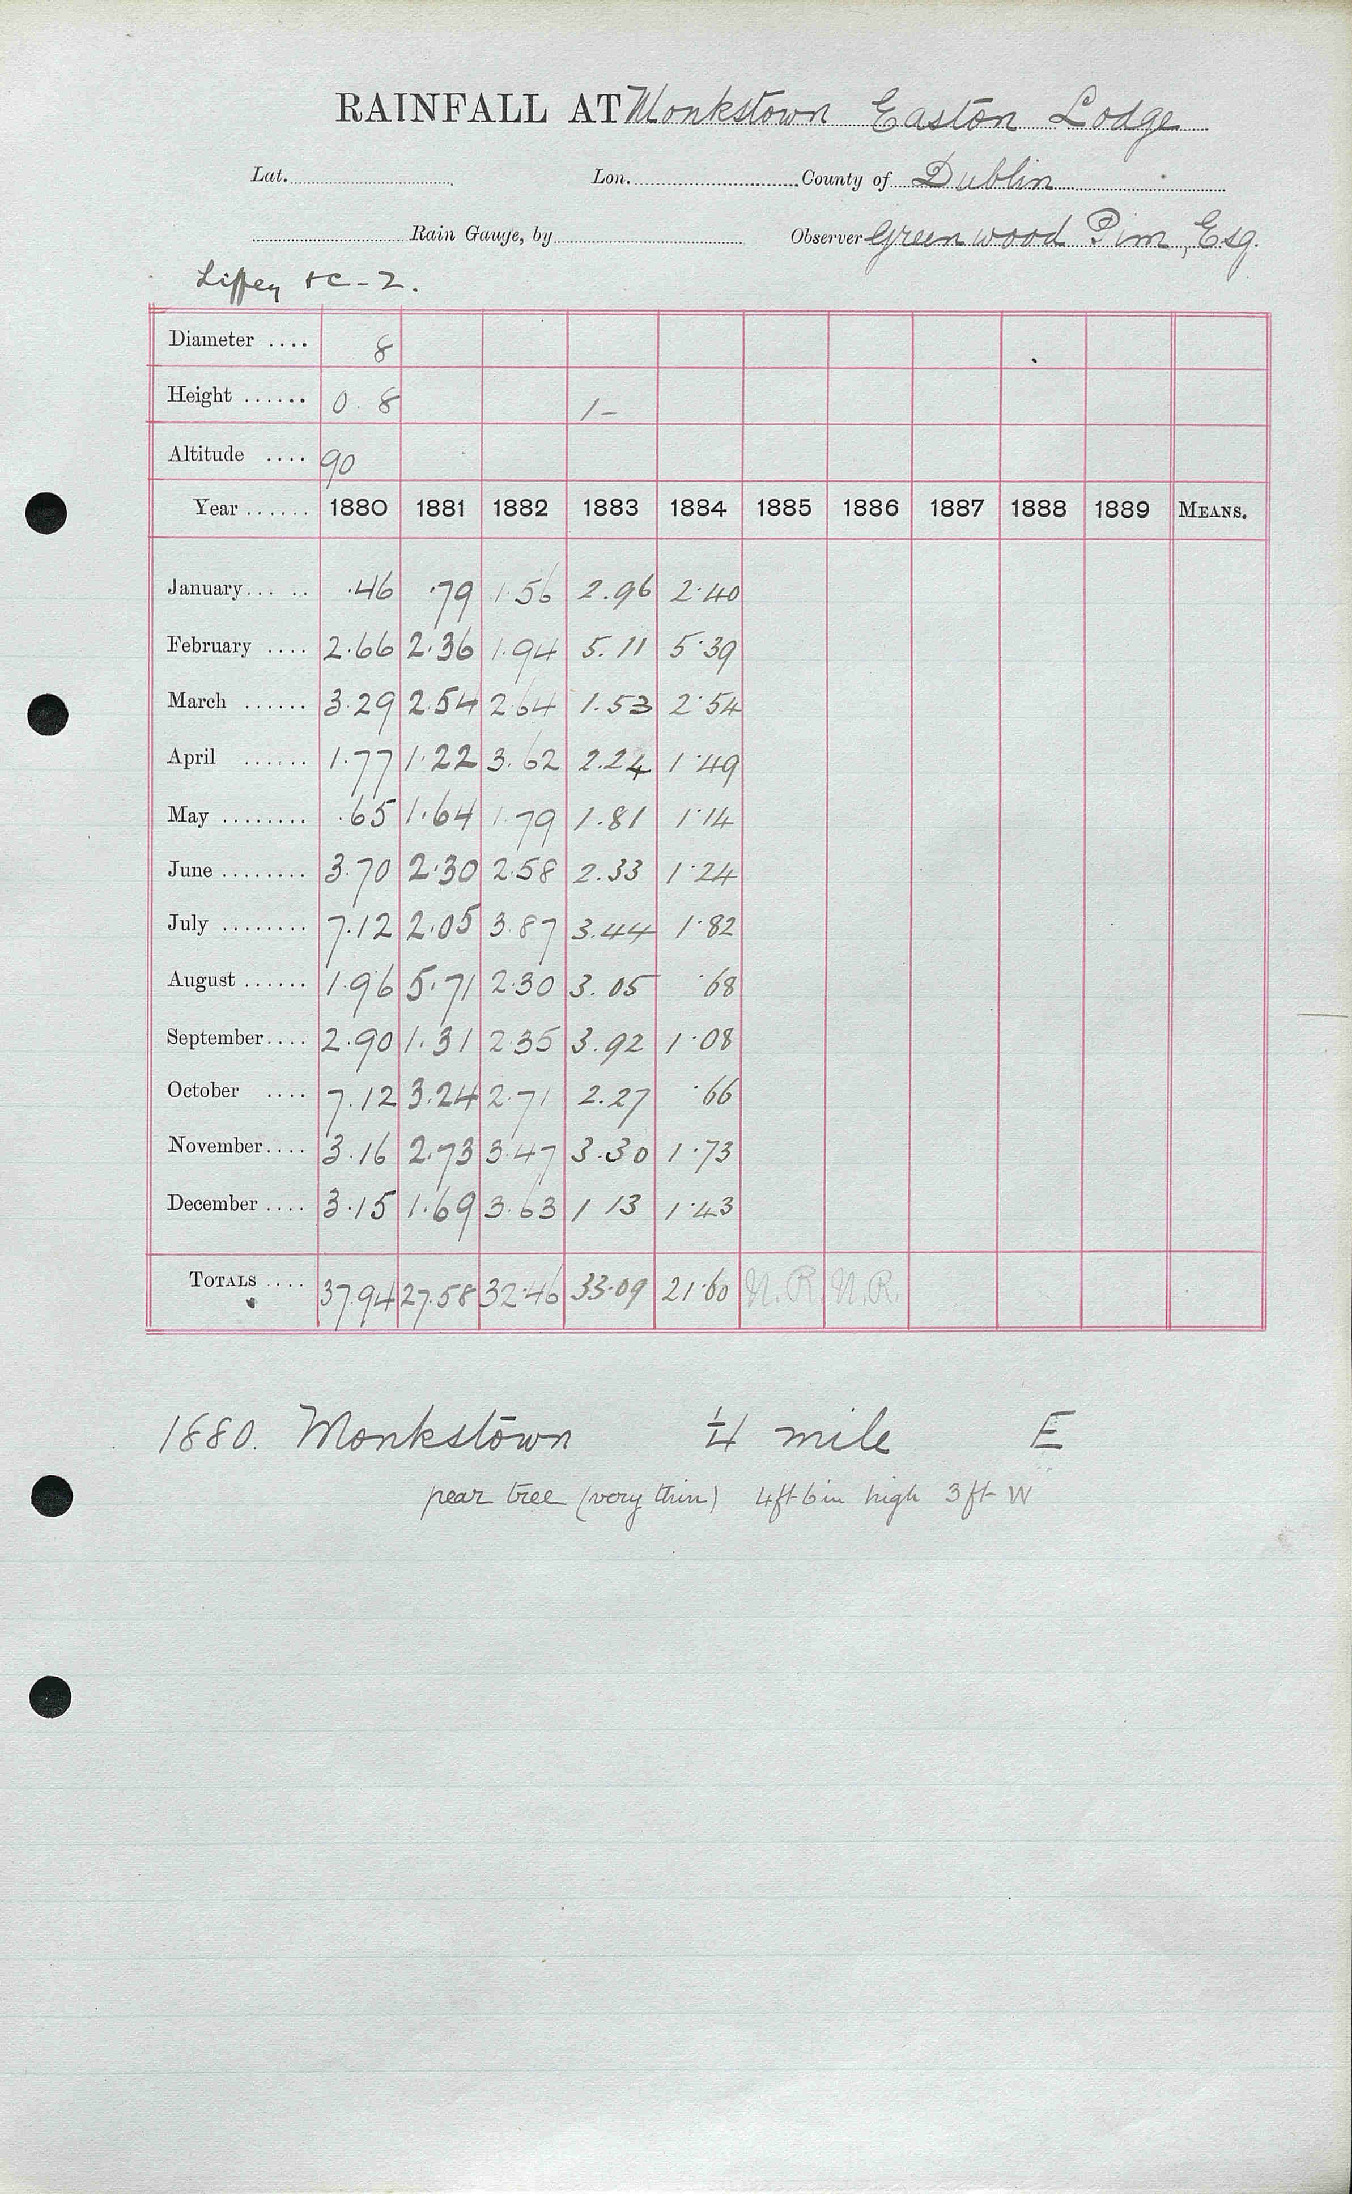 RAINFALL AT Monkstown Easton Lodge
Lat. Lon. County of Dublin
Rain Gauge, by Observer Greenwood Pim, Esq.
Liffey &c - 2.
Diameter .... 8
Height ...... 0 8 1-
Altitude .... 90
Year ...... 1880 1881 1882 1883 1884 1885 1886 1887 1888 1889 MEANS.
January ..... .46 .79 1.56 2.96 2.40
February .... 2.66 2.36 1.94 5.11 5.39
March ...... 3.29 2.54 2.64 1.53 2.54
April ...... 1.77 1.22 3.62 2.24 1.49
May ........ .65 1.64 1.79 1.81 1.14
June ........ 3.70 2.30 2.58 2.33 1.24
July ........ 7.12 2.05 3.87 3.44 1.82
August ...... 1.96 5.71 2.30 3.05 .68
September .... 2.90 1.31 2.35 3.92 1.08
October .... 7.12 3.24 2.71 2.27 .66
November .... 3.16 2.73 3.47 3.30 1.73
December .... 3.15 1.69 3.63 1 13 1.43
TOTALS .... 37.94 27.58 32.46 33.09 21.60 N.R. N.R.
1880. Monkstown 1/4 mile E
pear tree (very thin) 4ft 6in high 3ft W